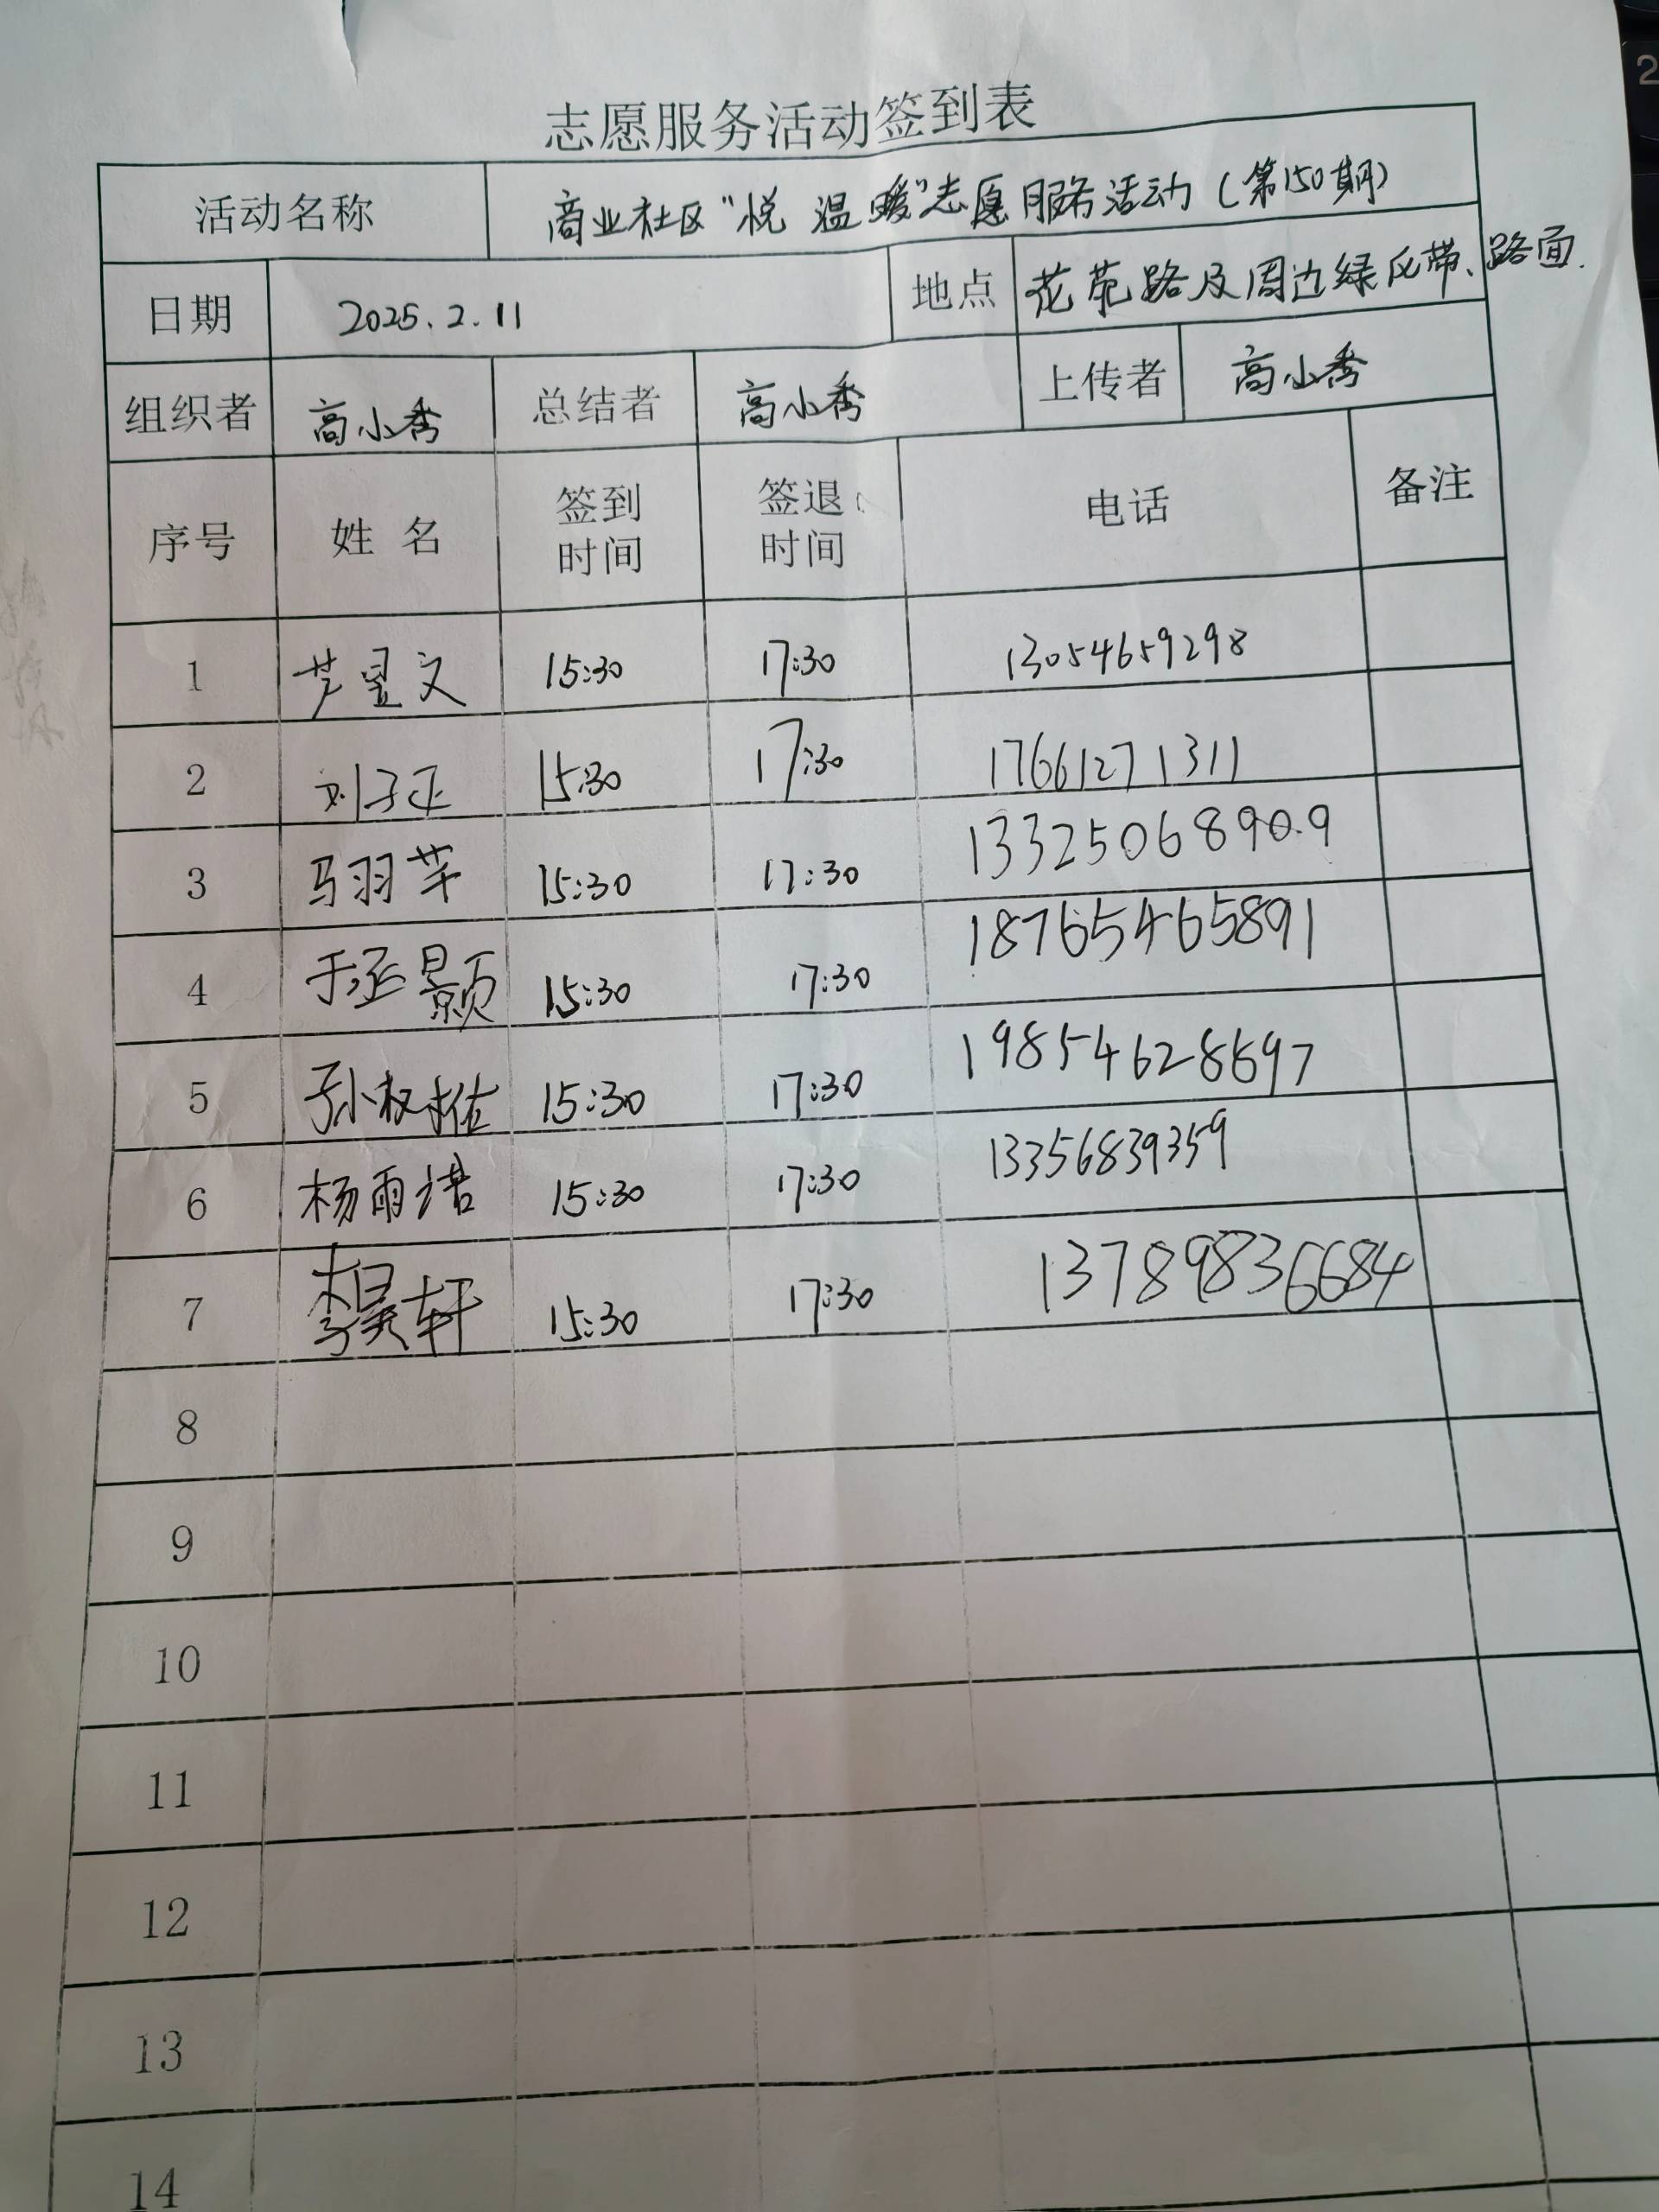 志愿服务活动签到表
活动名称 商业社区“悦 温暖”志愿服务活动（第150期）
日期 2025.2.11 地点 花苑路及周边绿化带、路面.
组织者 高小秀 总结者 高小秀 上传者 高小秀
序号 姓 名 签到时间 签退时间 电话 备注
1 芦昱文 15:30 17:30 13054659298
2 刘子正 15:30 17:30 17661271311
3 马羽芊 15:30 17:30 13325068909
4 于丞颢 15:30 17:30 18765465891
5 孙权佐 15:30 17:30 19854628697
6 杨雨诺 15:30 17:30 13356839359
7 李昊轩 15:30 17:30 13789836684
8
9
10
11
12
13
14
2